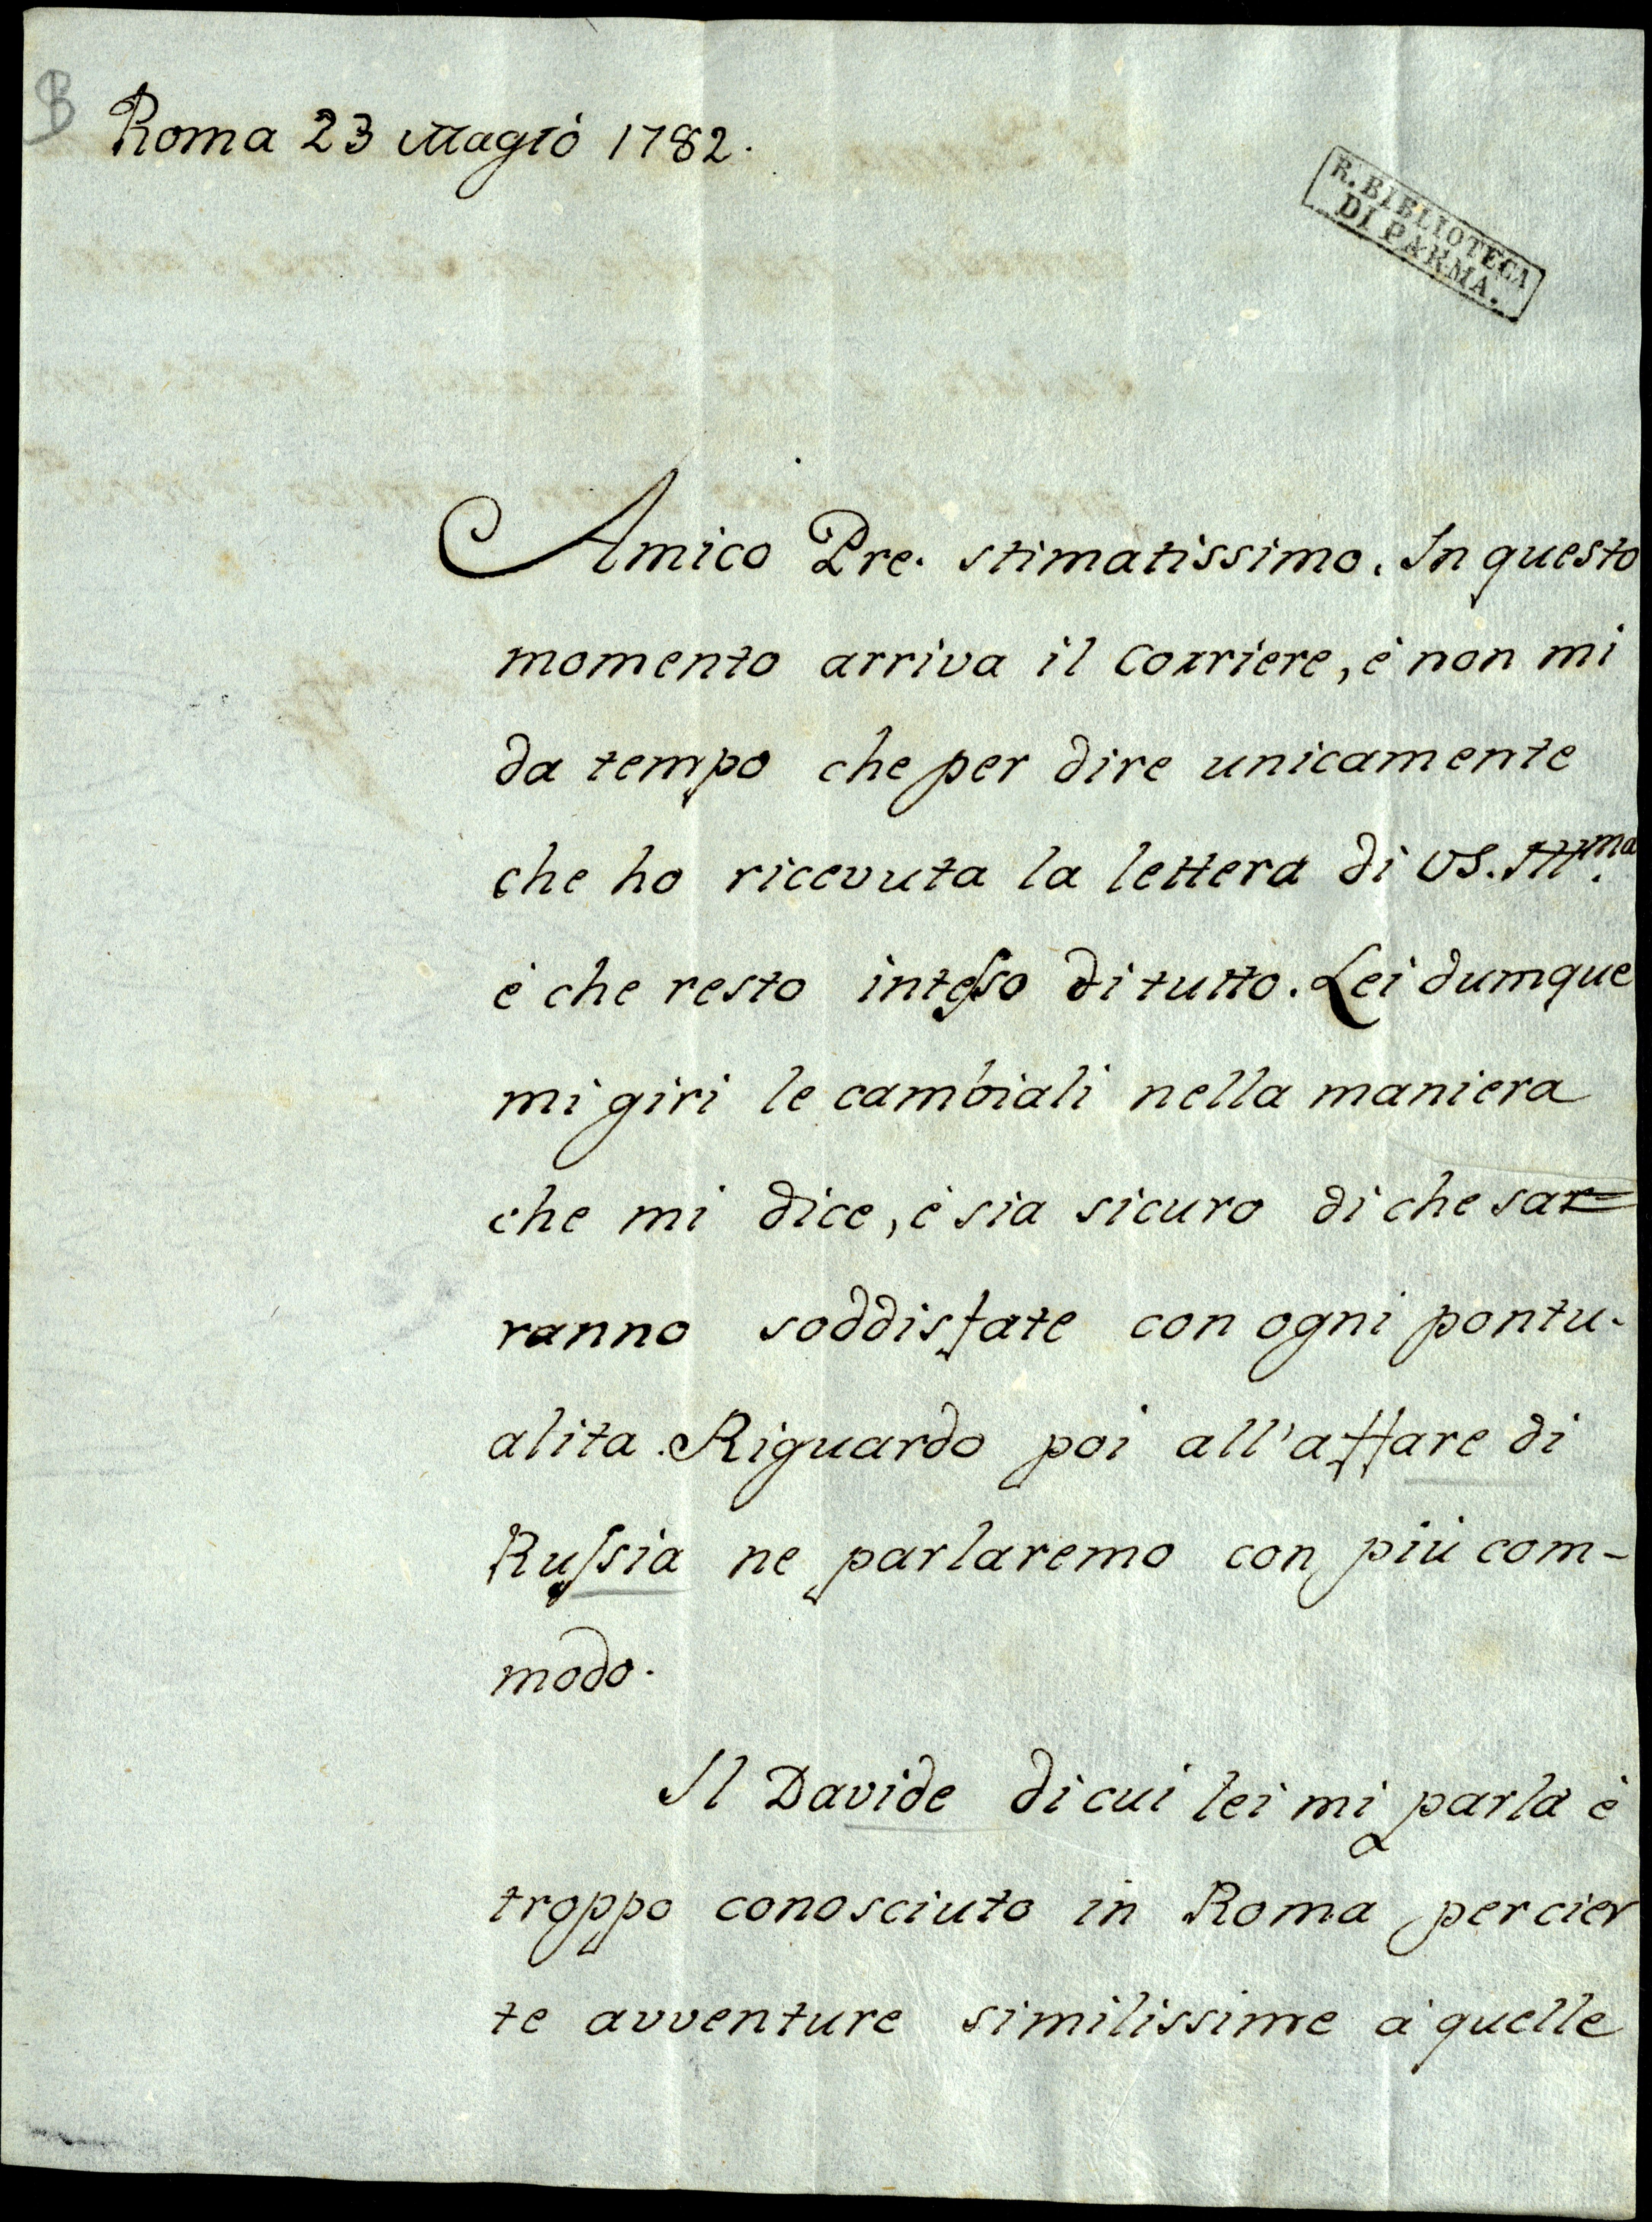 B
Roma 23 Magio 1782.
R. BIBLIOTECA
DI PARMA.
Amico Pre. stimatissimo. In questo
momento arriva il corriere, è non mi
da tempo che per dire unicamente
che ho ricevuta la lettera di VS. Ill.ma
è che resto inteso di tutto. Lei dumque
mi giri le cambiali nella maniera
che mi dice, è sia sicuro di che sar=
ranno soddisfate con ogni pontu-
alita. Riguardo poi all'affare di
Russia ne parlaremo con più com-
modo.
Il Davide di cui lei mi parla è
troppo conosciuto in Roma per cier
te avventure similissime à quelle